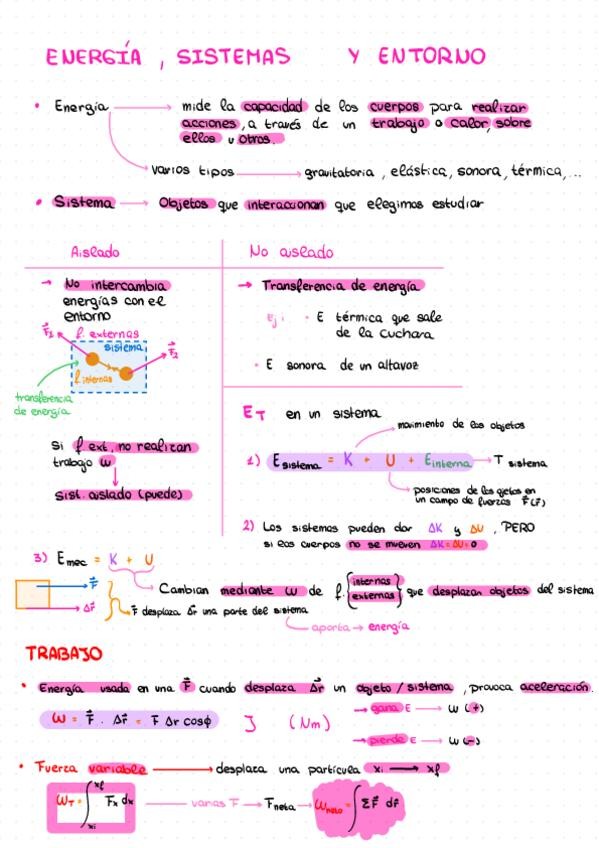 ENERGÍA, SISTEMAS Y ENTORNO
• Energía → mide la capacidad de los cuerpos para realizar
acciones, a través de un trabajo o calor, sobre
ellos u otros.
varios tipos → gravitatoria, elástica, sonora, térmica,...
• Sistema → Objetos que interaccionan que elegimos estudiar
Aislado
→ No intercambia
energías con el
entorno
f. externas
F⃗₁
sistema
F⃗₂
f. internas
transferencia
de energía
Si f ext, no realizan
trabajo W
Sist. aislado (puede)
No aislado
→ Transferencia de energía
Ej: • E térmica que sale
de la cuchara
• E sonora de un altavoz
E_T en un sistema
movimiento de los objetos
1) E sistema = K + U + E interna → T sistema
posiciones de los ojetos en
un campo de fuerzas F⃗(r⃗)
2) Los sistemas pueden dar ΔK y ΔU, PERO
si los cuerpos no se mueven ΔK=ΔU=0
3) E mec = K + U
F⃗
Δr⃗
Cambian mediante W de f. {internas externas} que desplazan objetos del sistema
F⃗ desplaza Δr⃗ una parte del sistema
aporta → energía
TRABAJO
• Energía usada en una F⃗ cuando desplaza Δr⃗ un objeto / sistema, provoca aceleración.
W = F⃗ · Δr⃗ = F Δr cosϕ J (Nm)
→ gana E → W (+)
→ pierde E → W (-)
• Fuerza variable → desplaza una partícula xi → xf
W_T = ∫_xi^xf Fx dx → varias F → F neta → W neto = ∫ ΣF⃗ dr⃗